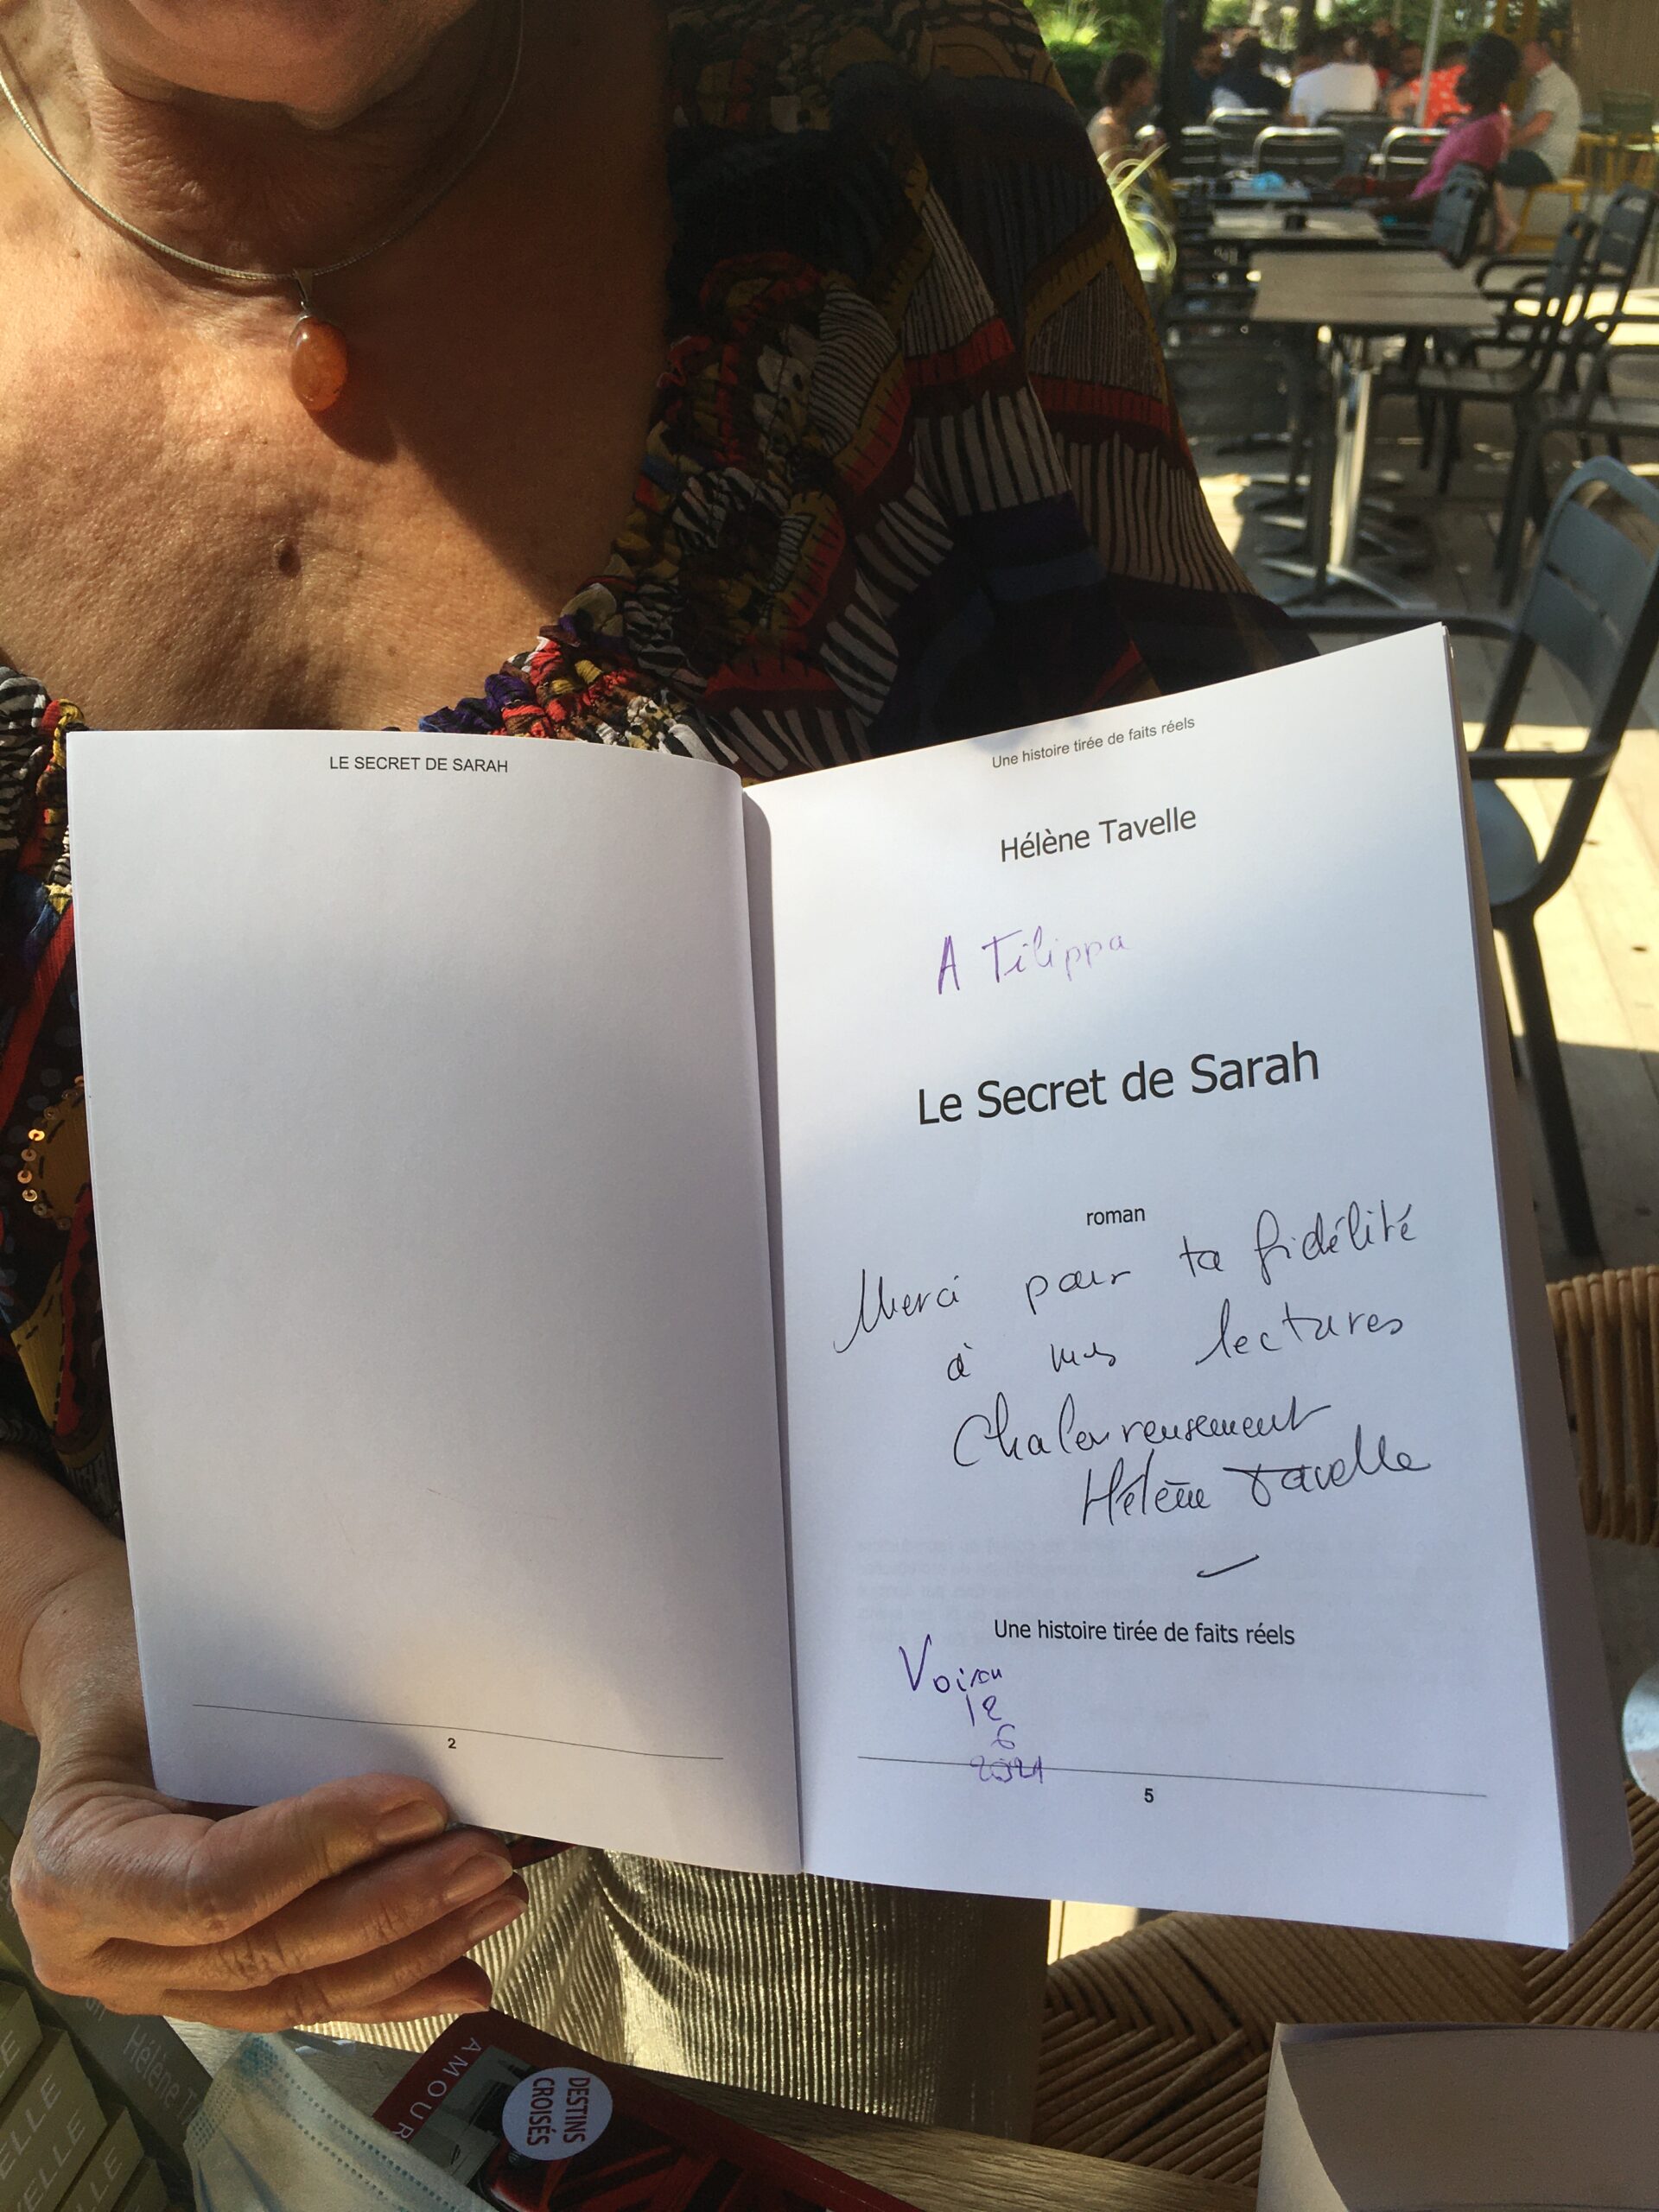 LE SECRET DE SARAH
2
Une histoire tirée de faits réels
Hélène Tavelle
A Filippa
Le Secret de Sarah
roman
Merci pour ta fidélité
à mes lectures
Chaleureusement
Hélène Tavelle
Une histoire tirée de faits réels
Voiron
12
6
2021
5
AMOUR
DESTINS
CROISÉS
Hélène
ELLE
VELLE